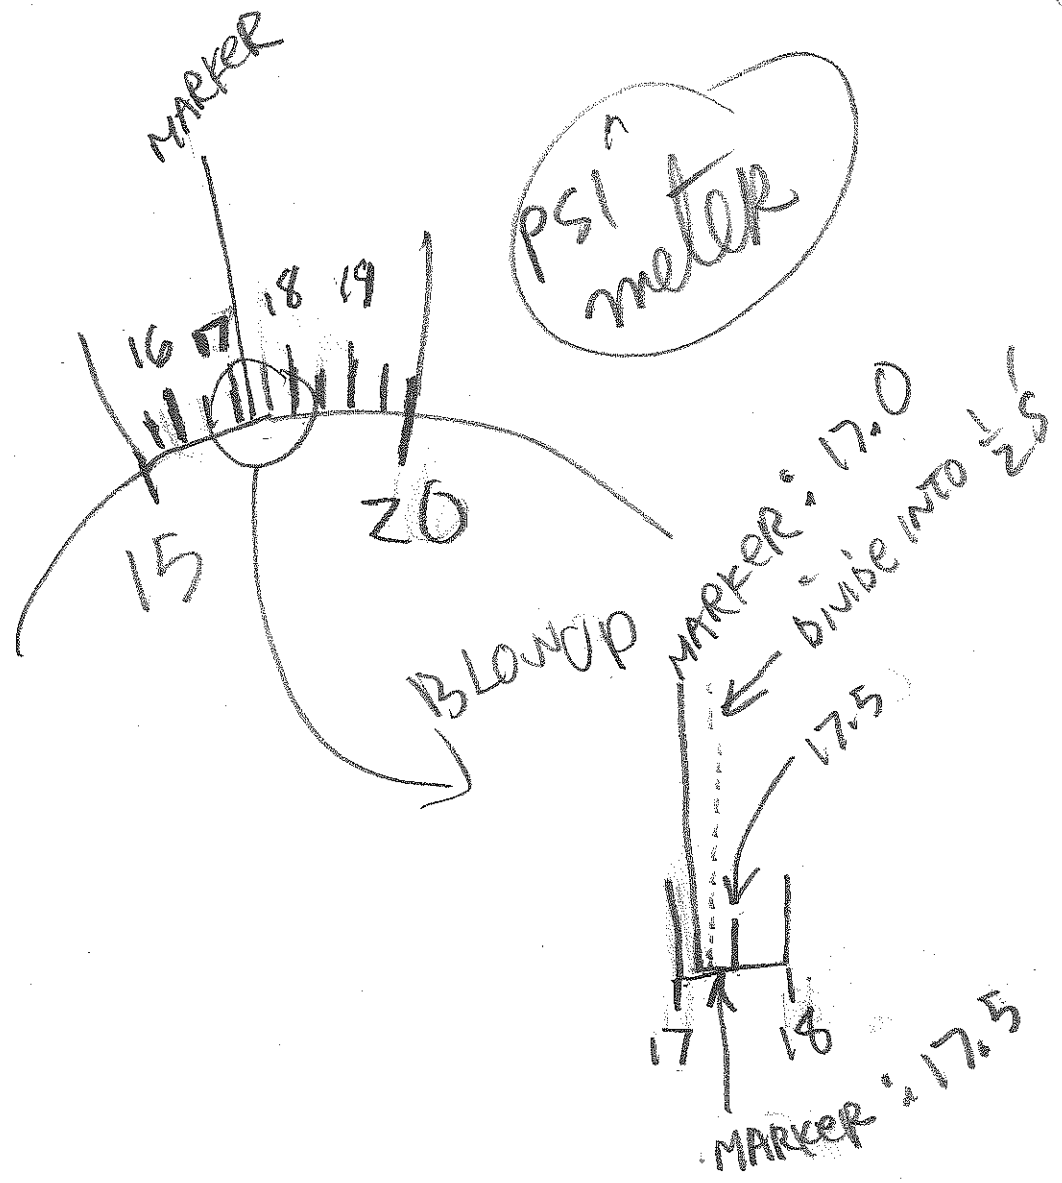 MARKER
psi
meter
16 17 18 19
15
20
BLOWUP
MARKER: 17.0
DIVIDE INTO 1/2's
17.5
17
18
MARKER: 17.5